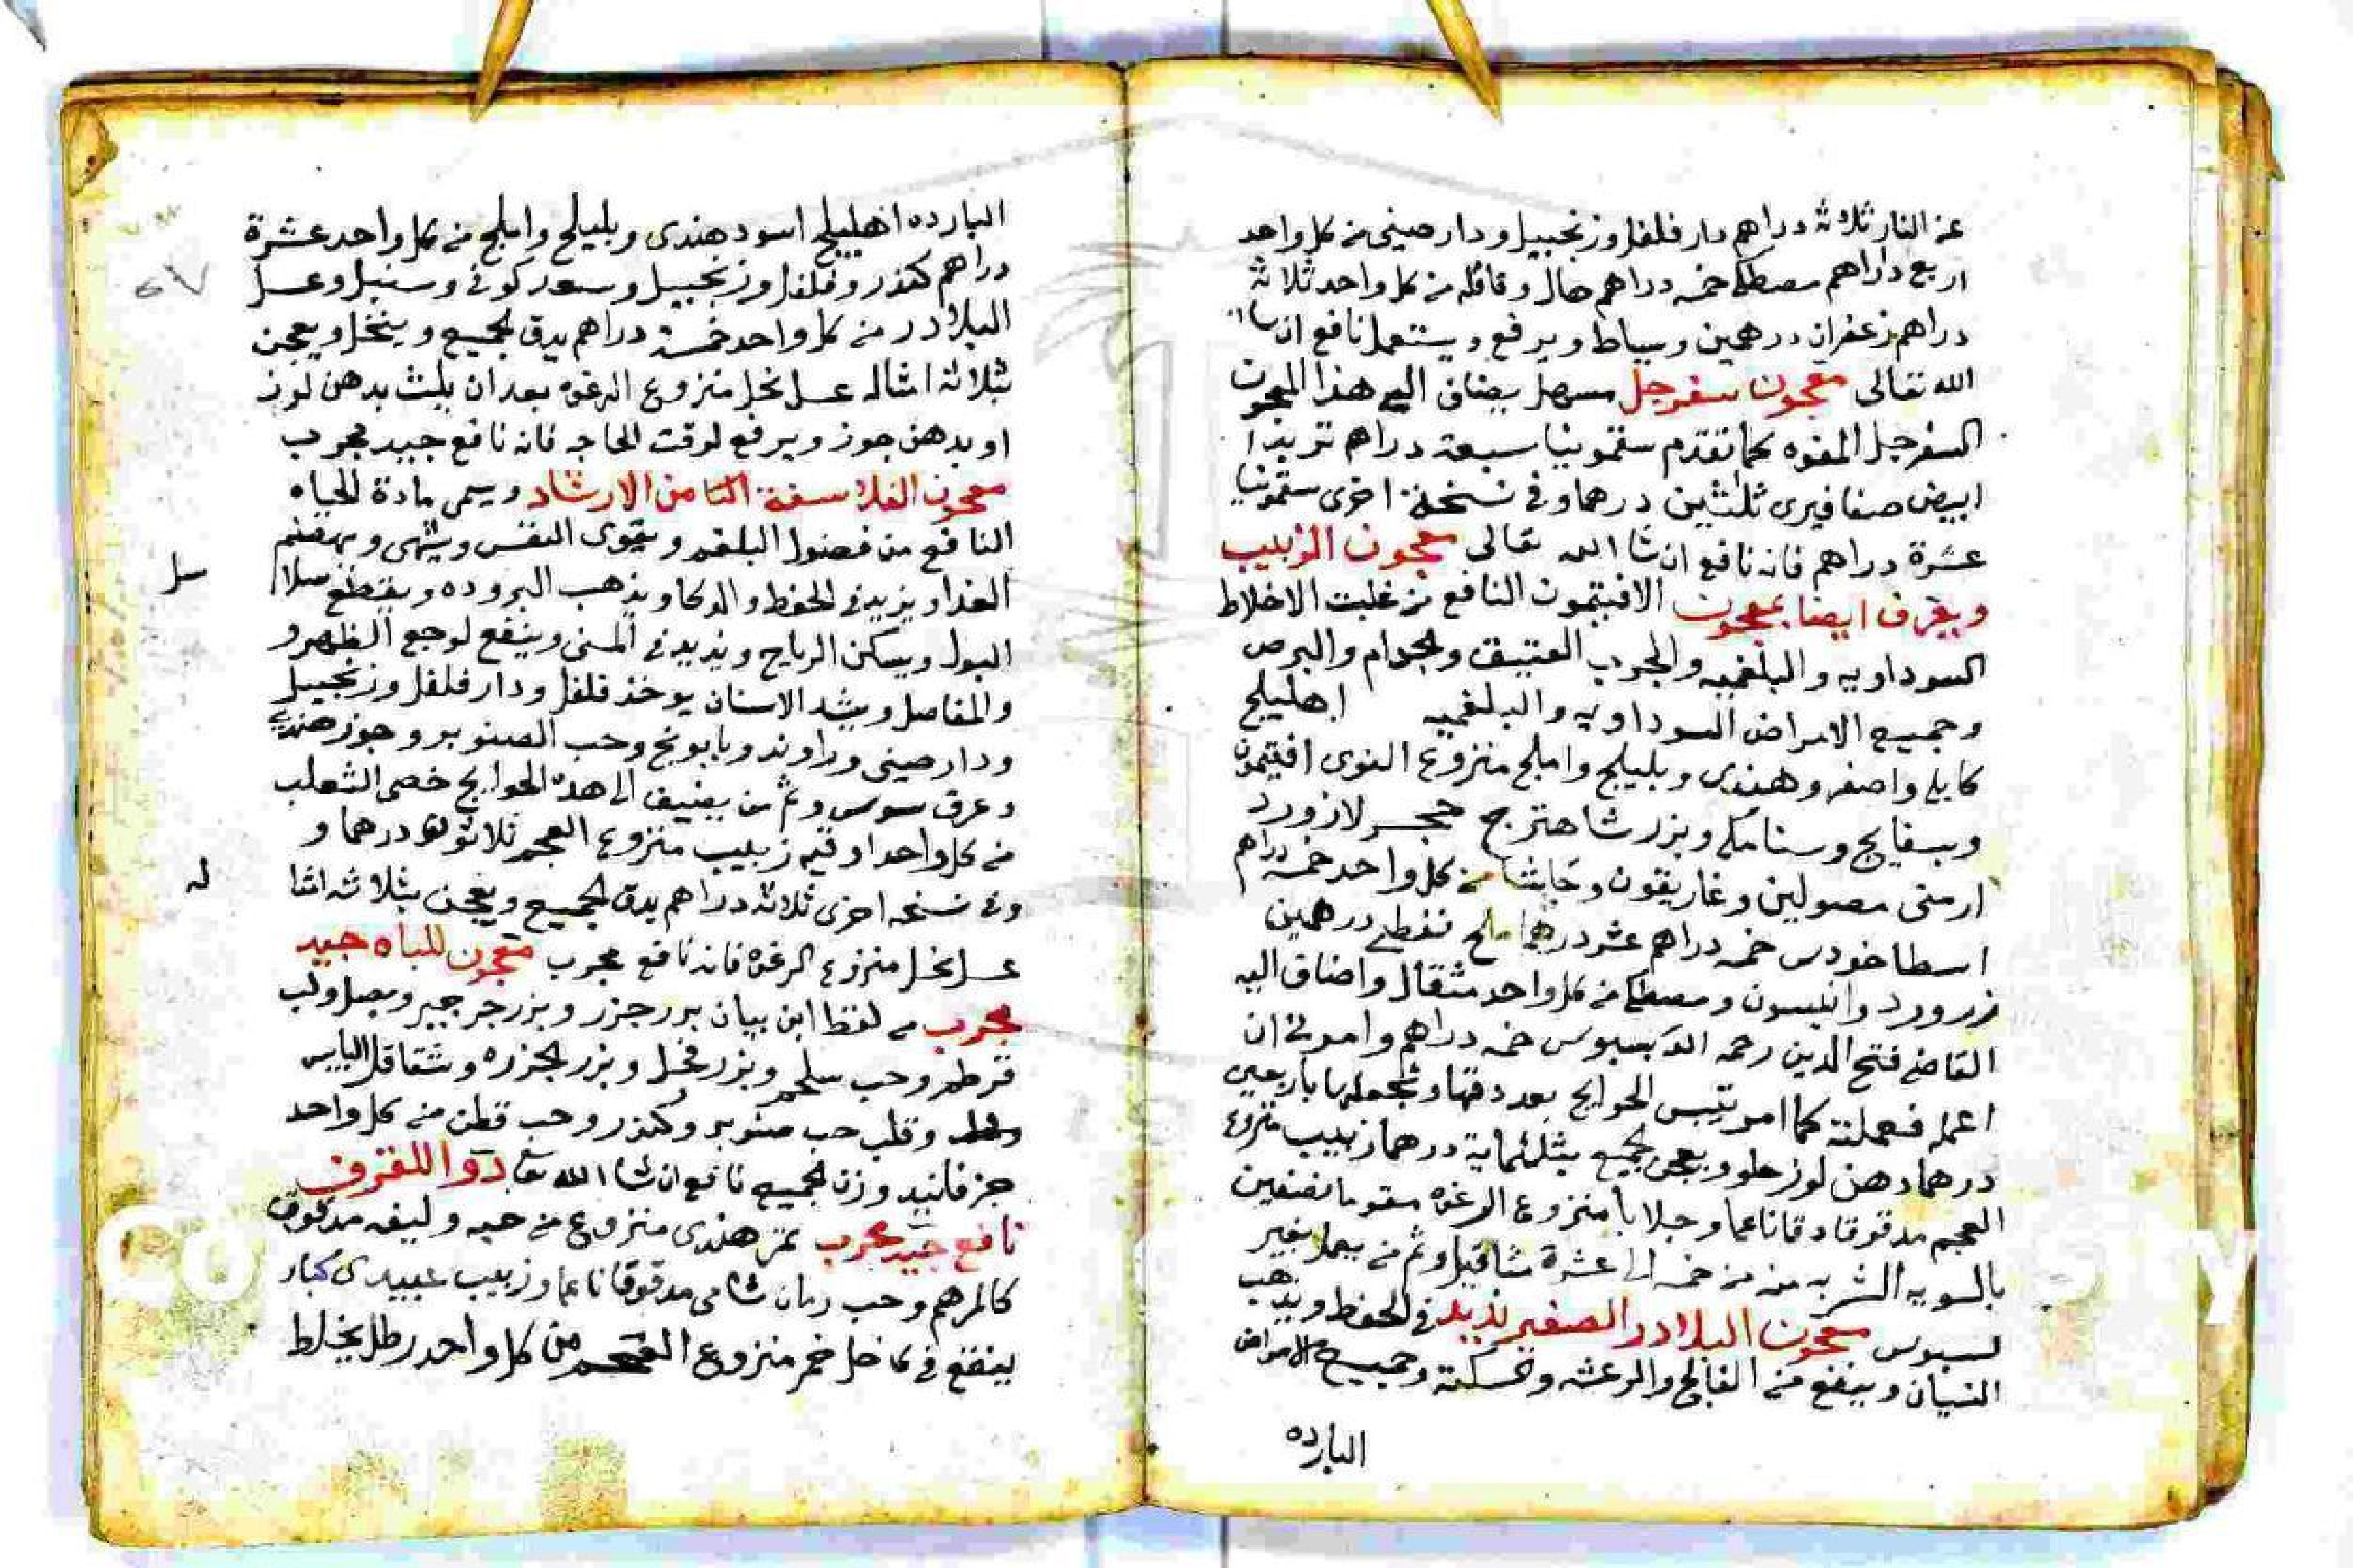 عن النار ثلاثة دراهم دار فلفل وزنجبيل ودار صيني من كل واحد
اربع دراهم مصطكى خمسه دراهم هال وقاقله من كل واحد ثلاثة
دراهم زعفران درهمين ويساط ويرفع ويستعمل نافع ان شا
الله تعالى معجون سفرجل مسهل يضاف الى هذا المعجون
السفرجل المفوه كما تقدم سقمونيا سبعة دراهم تربد
ابيض صنافيرى ثلثين درهما وفى نسخة اخرى سقمونيا
عشرة دراهم فانه نافع ان شا الله تعالى معجون الزبيب
ويعرف ايضا بمعجون الافيتمون النافع من غلبت الاخلاط
السوداويه والبلغميه والجرب العتيق والجدام والبرص
وجميع الامراض السوداويه والبلغميه اهليلج
كابلى واصفر وهندى وبليلج واملج منزوع النوى افيتمون
وبسفايج وسنامكى وبزر شاهترج حجر لازورد
ارمنى مصولين وغاريقون وحاشا من كل واحد خمسه دراهم
اسطاخودس خمسه دراهم عشر درهما ملح نفطى درهمين
زرورد وانيسون ومصطكى من كل واحد مثقال واضاف اليه
القاضى فتح الدين رحمه الله بسبوس خمسه دراهم وامرنى ان
اعمله فعملته كما امر تيبس الحوايج بعد دقها ونجعلها باربعين
درهما دهن لوز حلو ويعجن الجميع بثلثماية درهما زبيب منزوع
العجم مدقوقا دقا ناعما وجلابا منزوع الرغوه مقوما نصفين
بالسويه الشربه منه من خمسه الى عشرة مثاقيل وثم من يعمل بغير
لسبوس معجون البلادر الصغير يزيد فى الحفظ ويذهب
النسيان وينفع من الفالج والرعشه والسكتة وجميع الامراض
البارده
البارده اهليلج اسود هندى وبليلج واملج من كل واحد عشرة
دراهم كندر وفلفل وزنجبيل وسعد كوفى وسنبل وعسل
البلادر من كل واحد خمسة دراهم يدق الجميع وينخل ويعجن
بثلاثة امثاله عسل نحل منزوع الرغوه بعد ان يلت بدهن لوز
او بدهن جوز ويرفع لوقت الحاجه فانه نافع جيد مجرب
معجون الفلاسفة الثامن الارشاد ويسمى مادة الحياه
النافع من فضول البلغم ويقوى النفس ويشهى ويهضم
الغدا ويزيد فى الحفظ والدكا ويذهب البروده ويقطع سلا
سل
البول ويسكن الرياح ويزيد فى المنى وينفع لوجع الظهر و
والمفاصل ويشد الاسنان يوخذ فلفل ودار فلفل وزنجبيل
ودارصينى وراوند وبابونج وحب الصنوبر وجوز هندى
وعرق سوس وثم من يضيف الى هده الحوايج خصى الثعلب
من كل واحد اوقيه زبيب منزوع العجم ثلاثون درهما و
وفى نسخه اخرى ثلاثة دراهم يدق الجميع ويعجن بثلاثه امثا
له
عسل نحل منزوع الرغوه فانه نافع مجرب معجون للباه جيد
مجرب من لفظ ابن بيان بزر جزر وبزر جرجير وبصل ولب
قرطم وحب سلجم وبزر فجل وبزر الجزره وشقاقل
وقلب حب صنوبر وكندر وحب قطن من كل واحد
جز فانيد وزن الجميع نافع ان شا الله تعا دوا للقرف
نافع جيد مجرب تمر هندى منزوع من حبه وليفه مدقوق
كالمرهم وحب رمان شامى مدقوقا ناعما وزبيب عبيدى كبار
ينقع فى خل خمر منزوع العجم من كل واحد رطل يخلط